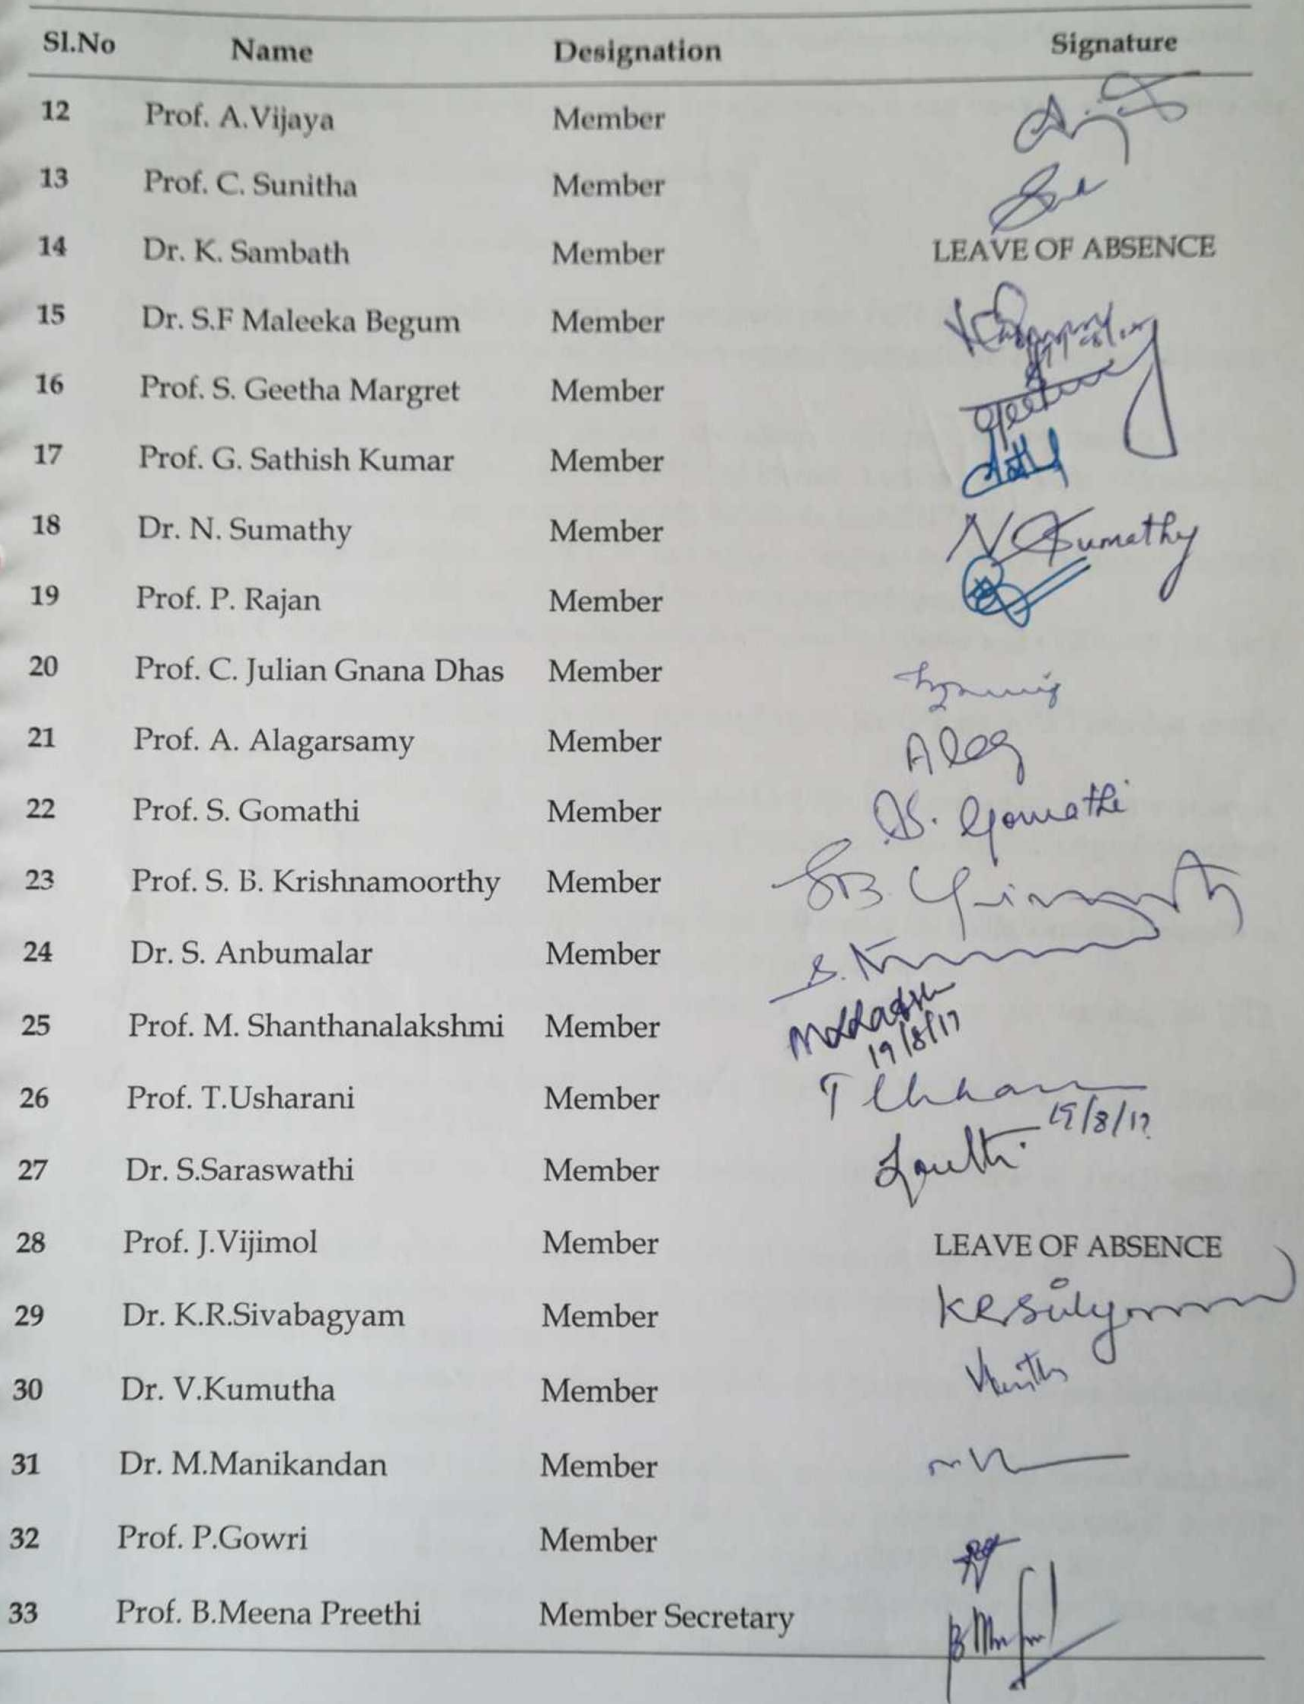 Sl.No Name Designation Signature
12 Prof. A.Vijaya Member
13 Prof. C. Sunitha Member
14 Dr. K. Sambath Member LEAVE OF ABSENCE
15 Dr. S.F Maleeka Begum Member
16 Prof. S. Geetha Margret Member Geetha
17 Prof. G. Sathish Kumar Member
18 Dr. N. Sumathy Member N Sumathy
19 Prof. P. Rajan Member
20 Prof. C. Julian Gnana Dhas Member
21 Prof. A. Alagarsamy Member Alag
22 Prof. S. Gomathi Member S. Gomathi
23 Prof. S. B. Krishnamoorthy Member
24 Dr. S. Anbumalar Member
25 Prof. M. Shanthanalakshmi Member
19/8/17
26 Prof. T.Usharani Member
19/8/17
27 Dr. S.Saraswathi Member
28 Prof. J.Vijimol Member LEAVE OF ABSENCE
29 Dr. K.R.Sivabagyam Member
30 Dr. V.Kumutha Member
31 Dr. M.Manikandan Member
32 Prof. P.Gowri Member
33 Prof. B.Meena Preethi Member Secretary